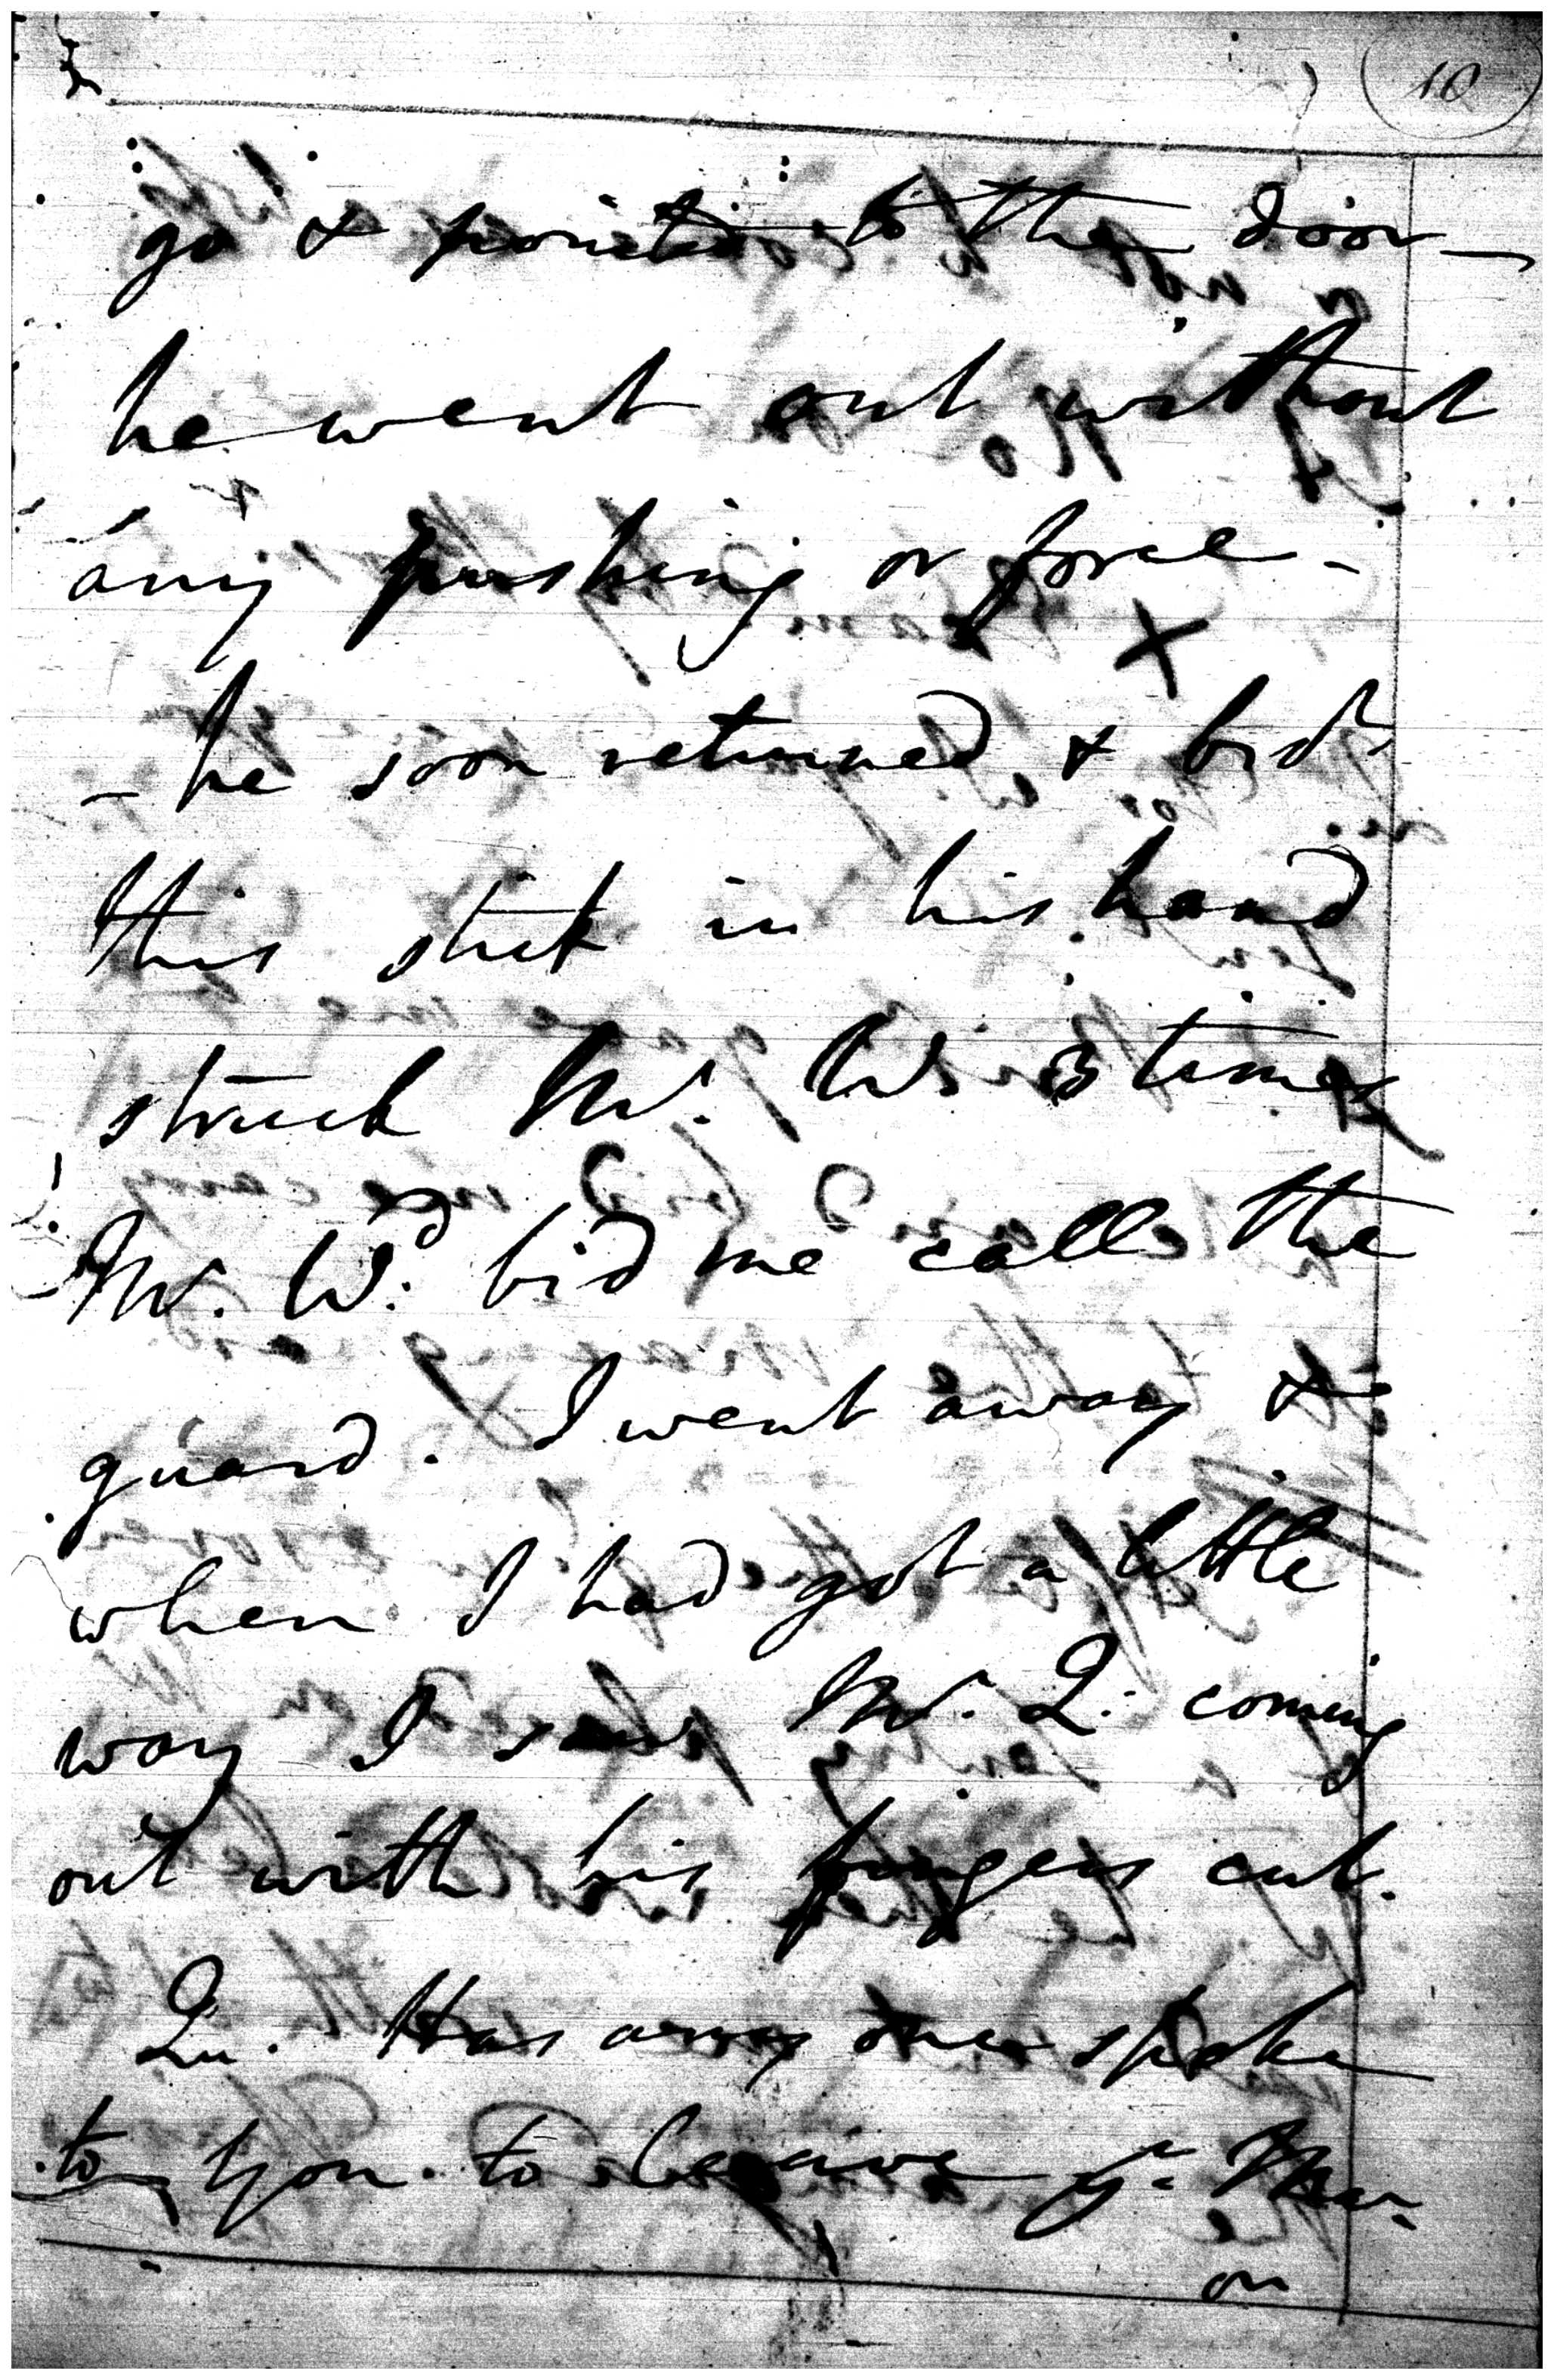 10
go & pointed to the door —
he went out without
any pushing or force -
- he soon returned &
this stick in his hand
struck Mr. W. 3 times
Mr. Wd: bid me call the
guard. I went away &
when I had got a little
way I saw Mr. Q. coming
out with his fingers cut.
Qu. Has any one spoke
to you to leave ye
on